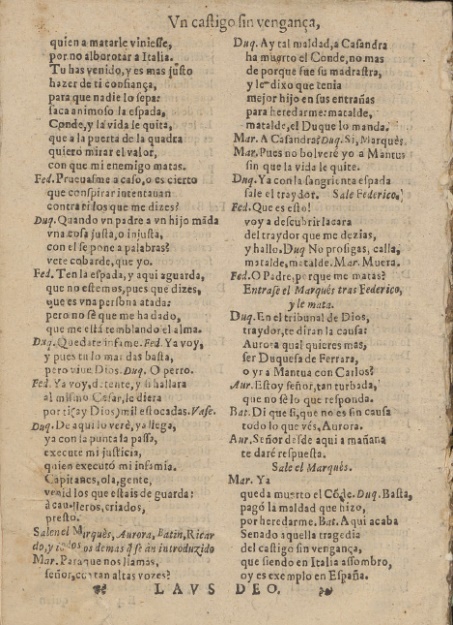 Vn castigo sin vengança,
quien a matarle viniesse,
por no alborotar a Italia.
Tu has venido, y es mas justo
hazer de ti confiança,
para que nadie lo sepa:
saca animoso la espada,
Conde, y la vida le quita,
que a la puerta de la quadra
quiero mirar el valor,
con que mi enemigo matas.
Fed. Prueuasme a caso, o es cierto
que conspirar intentauan
contra ti los que me dizes?
Duq. Quando vn padre a vn hijo mãda
vna cosa justa, o injusta,
con el se pone a palabras?
vete cobarde, que yo.
Fed. Ten la espada, y aqui aguarda,
que no es temos, pues que dizes,
que es vna persona atada:
pero no sè que me ha dado,
que me està temblando el alma.
Duq. Quedate infame. Fed. Ya voy,
y pues tu lo mandas basta,
pero viue Dios. Duq. O perro.
Fed. Ya voy, detente, y si hallara
al mismo Cesar, le diera
por ti (ay Dios) mil estocadas. Vase.
Duq. De aqui lo verè, ya llega,
ya con la punta la passa,
execute mi justicia,
quien executó mi infamia.
Capitanes, ola, gente,
venid los que estais de guarda:
à caualleros, criados,
presto.
Salen el Marquès, Aurora, Batin, Ricar
do, y todos los demas q̃ se àn introduzido
Mar. Para que nos llamas,
señor, con tan altas vozes?
Duq. Ay tal maldad, a Casandra
ha muerto el Conde, no mas
de porque fue su madrastra,
y le dixo que tenia
mejor hijo en sus entrañas
para heredarme: matalde,
matalde, el Duque lo manda.
Mar. A Casandra? Duq. Si, Marquès.
Mar. Pues no boluerè yo a Mantua
sin que la vida le quite.
Duq. Ya con la sangrienta espada
sale el traydor. Sale Federico.
Fed. Que es esto!
voy a descubrir la cara
del traydor que me dezias,
y hallo. Duq No prosigas, calla,
matalde, matalde. Mar. Muera.
Fed. O Padre, porque me matas?
Entrase el Marquès tras Federico,
y le mata.
Duq. En el tribunal de Dios,
traydor, te diran la causa:
Aurora qual quieres mas,
ser Duquesa de Ferrara,
o yr a Mantua con Carlos?
Aur. Estoy señor, tan turbada,
que no sè lo que responda.
Bat. Di que si, que no es sin causa
todo lo que vès, Aurora.
Aur. Señor desde aqui a mañana
te darè respuesta.
Sale el Marquès.
Mar. Ya
queda muerto el Cõde. Duq. Basta,
pagò la maldad que hizo,
por heredarme. Bat. Aqui acaba
Senado aquella tragedia
del castigo sin vengança,
que siendo en Italia assombro,
oy es exemplo en España.
LAVS DEO.